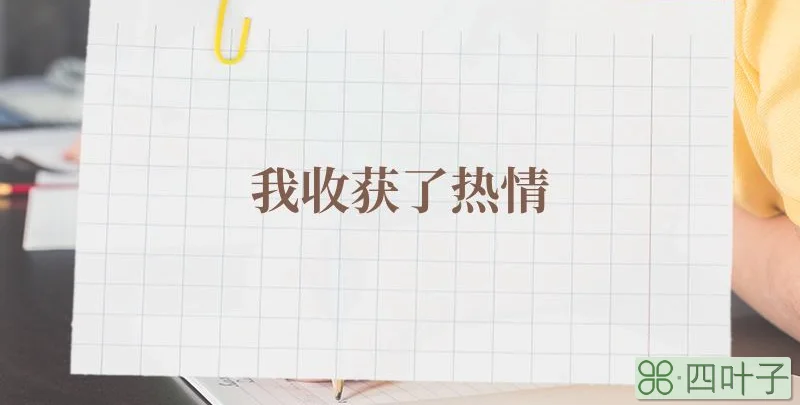 我收获了热情
四叶子